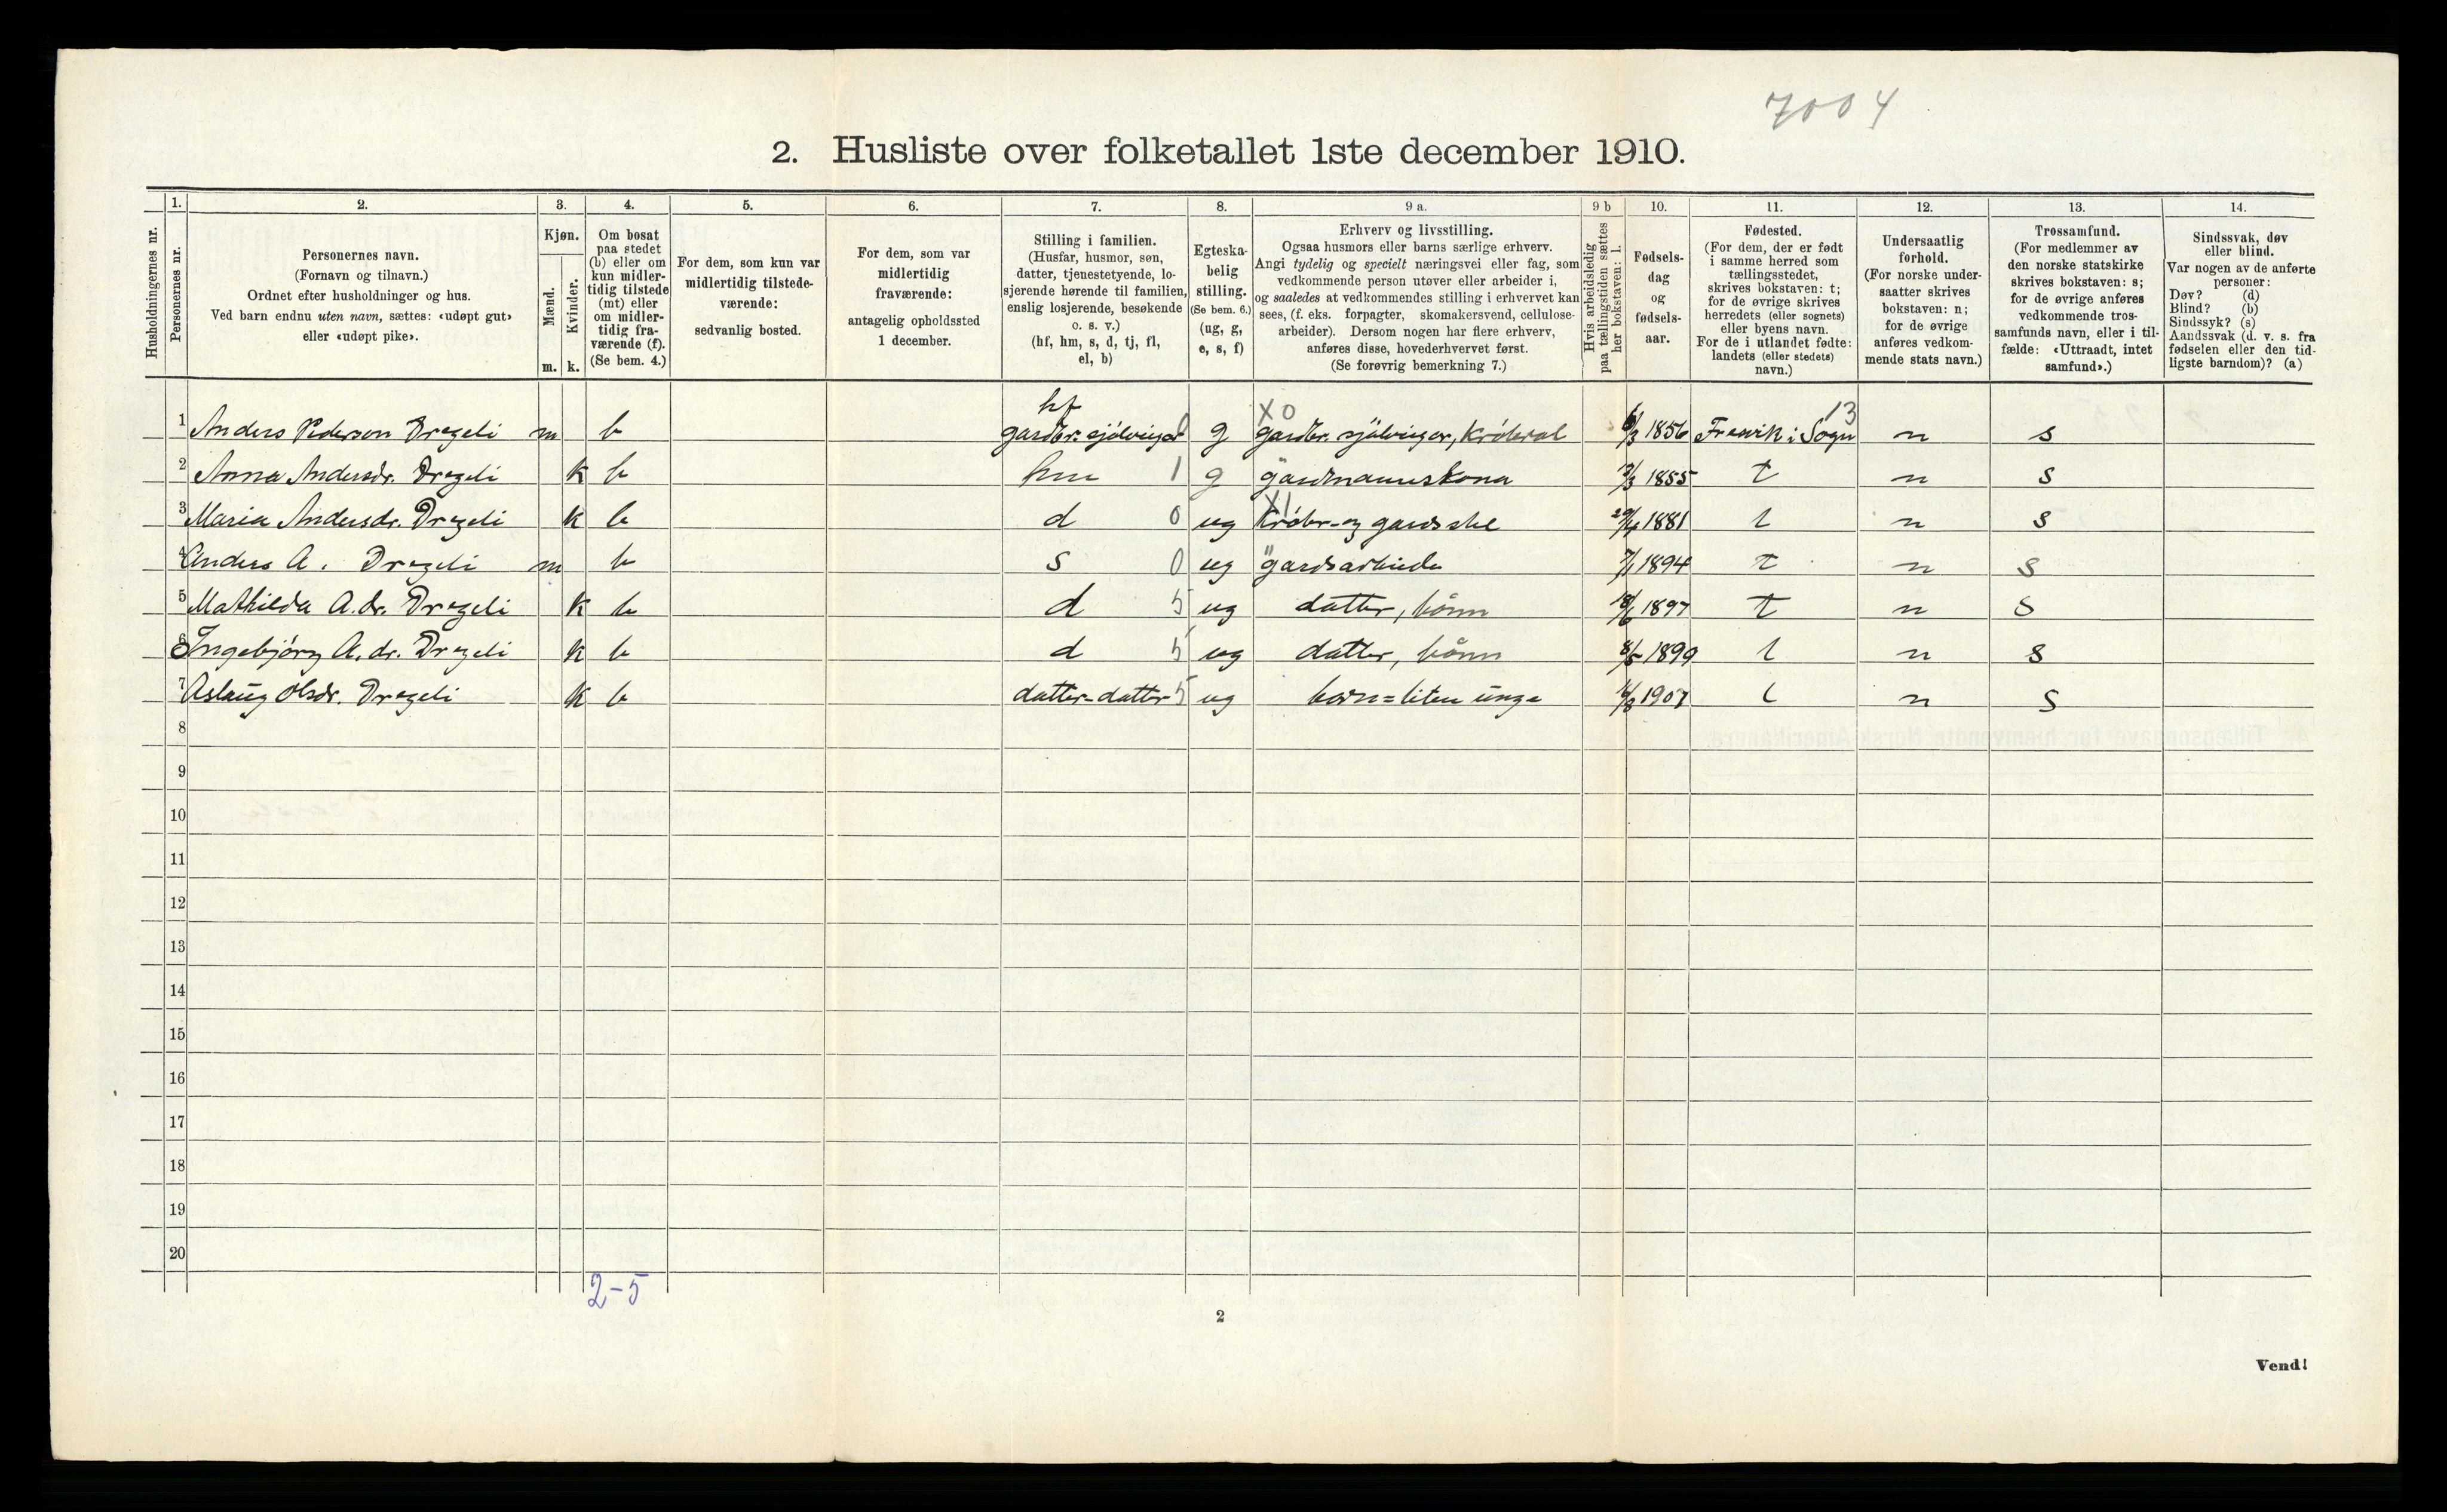 7004
2. Husliste over folketallet 1ste december 1910.
Husholdningernes nr.
1.
Personernes nr.
2.
Personernes navn.
(Fornavn og tilnavn.)
Ordnet efter husholdninger og hus.
Ved barn endnu uten navn, sættes: «udøpt gut»
eller «udøpt pike».
3.
Kjøn.
Mænd.
Kvinder.
m. k.
4.
Om bosat
paa stedet
(b) eller om
kun midler-
tidig tilstede
(mt) eller
om midler-
tidig fra-
værende (f).
(Se bem. 4.)
5.
For dem, som kun var
midlertidig tilstede-
værende:
sedvanlig bosted.
6.
For dem, som var
midlertidig
fraværende:
antagelig opholdssted
1 december.
7.
Stilling i familien.
(Husfar, husmor, søn,
datter, tjenestetyende, lo-
sjerende hørende til familien,
enslig losjerende, besøkende
o. s. v.)
(hf, hm, s, d, tj, fl,
el, b)
8.
Egteska-
belig
stilling.
(Se bem. 6.)
(ug, g,
e, s, f)
9 a.
Erhverv og livsstilling.
Ogsaa husmors eller barns særlige erhverv.
Angi tydelig og specielt næringsvei eller fag, som
vedkommende person utøver eller arbeider i,
og saaledes at vedkommendes stilling i erhvervet kan
sees, (f. eks. forpagter, skomakersvend, cellulose-
arbeider). Dersom nogen har flere erhverv,
anføres disse, hovederhvervet først.
(Se forøvrig bemerkning 7.)
9 b
Hvis arbeidsledig
paa tællingstiden sættes
her bokstaven: l.
10.
Fødsels-
dag
og
fødsels-
aar.
11.
Fødested.
(For dem, der er født
i samme herred som
tællingsstedet,
skrives bokstaven: t;
for de øvrige skrives
herredets (eller sognets)
eller byens navn.
For de i utlandet fødte:
landets (eller stedets)
navn.)
12.
Undersaatlig
forhold.
(For norske under-
saatter skrives
bokstaven: n;
for de øvrige
anføres vedkom-
mende stats navn.)
13.
Trossamfund.
(For medlemmer av
den norske statskirke
skrives bokstaven: s;
for de øvrige anføres
vedkommende tros-
samfunds navn, eller i til-
fælde: «Uttraadt, intet
samfund».)
14.
Sindssvak, døv
eller blind.
Var nogen av de anførte
personer:
Døv? (d)
Blind? (b)
Sindssyk? (s)
Aandssvak (d. v. s. fra
fødselen eller den tid-
ligste barndom)? (a)
hf X0 13
1 Anders Pederson Dregeli m b gardbr. sjölveigar 0 g gardbr. sjölveigar, 6/3 1856 i Sogn n s
2 Anna Andersdr. Dregeli k b hm 1 g gardmannskona 1855 t n s
X1
3 Maria Andersdr. Dregeli k b d 0 ug 29/4 1881 t n s
4 Anders A. Dregeli m b s 0 ug " gardsarbeide 7/1 1894 t n s
5 Mathilda A. dr. Dregeli k b d 5 ug datter, 18/6 1897 t n s
6 Ingebjörg A. dr. Dregeli k b d 5 ug datter, 8/5 1899 t n s
7 Aslaug Olsdr. Dregeli k b datter-datter 5 ug barn = liten unge 1907 t n s
8
9
10
11
12
13
14
15
16
17
18
19
20
2-5
2
Vend!